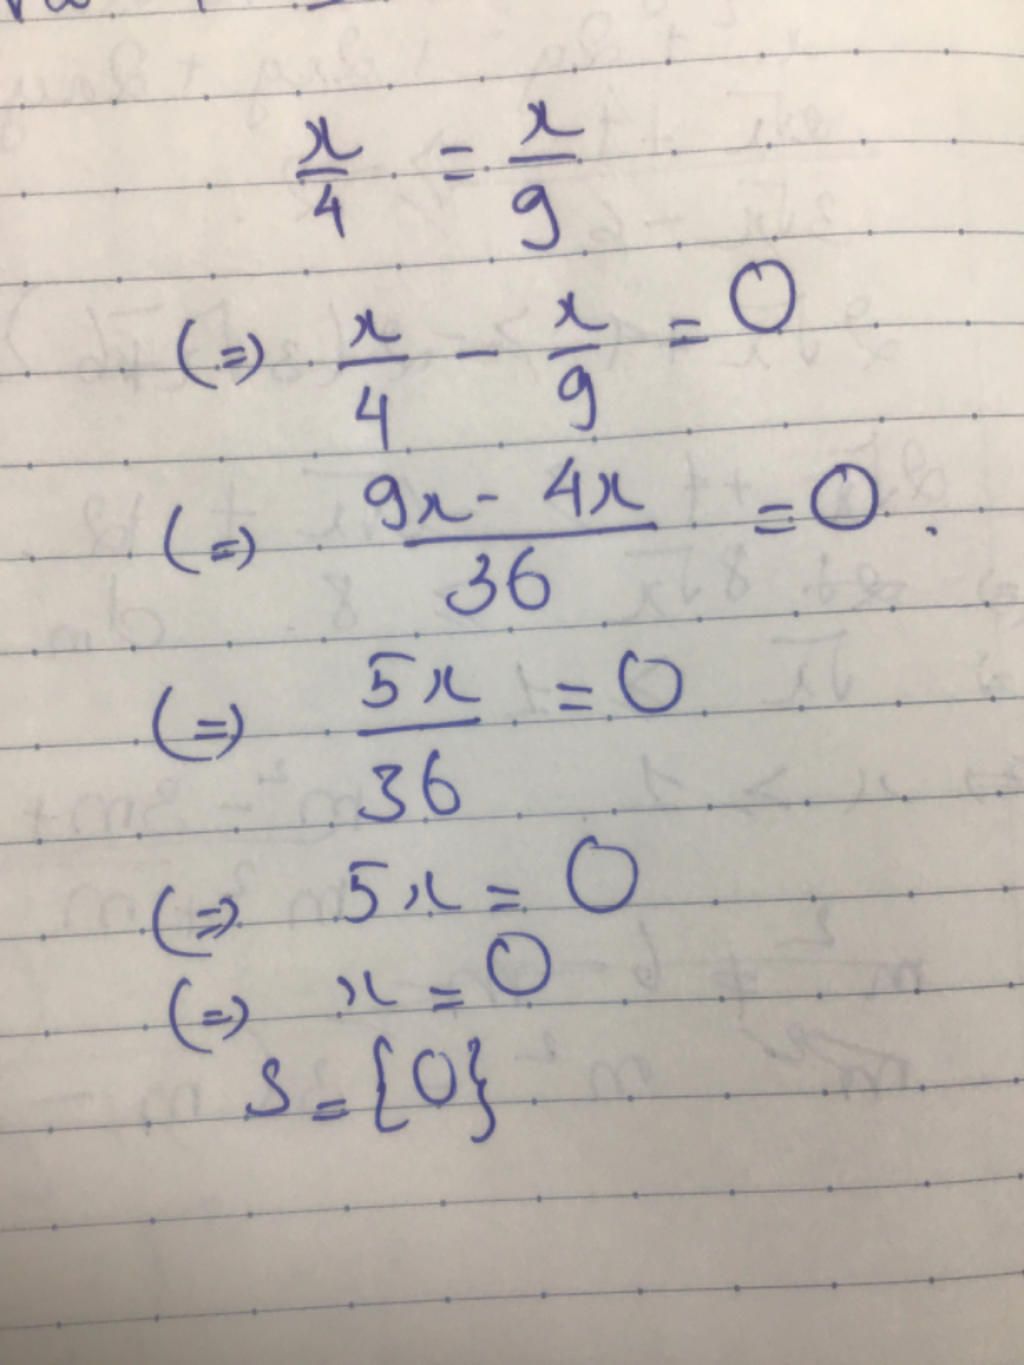 x/4 = x/9
(=) x/4 - x/9 = 0
(=) 9x - 4x/36 = 0.
(=) 5x/36 = 0
(=) 5x = 0
(=) x = 0
S = {0}